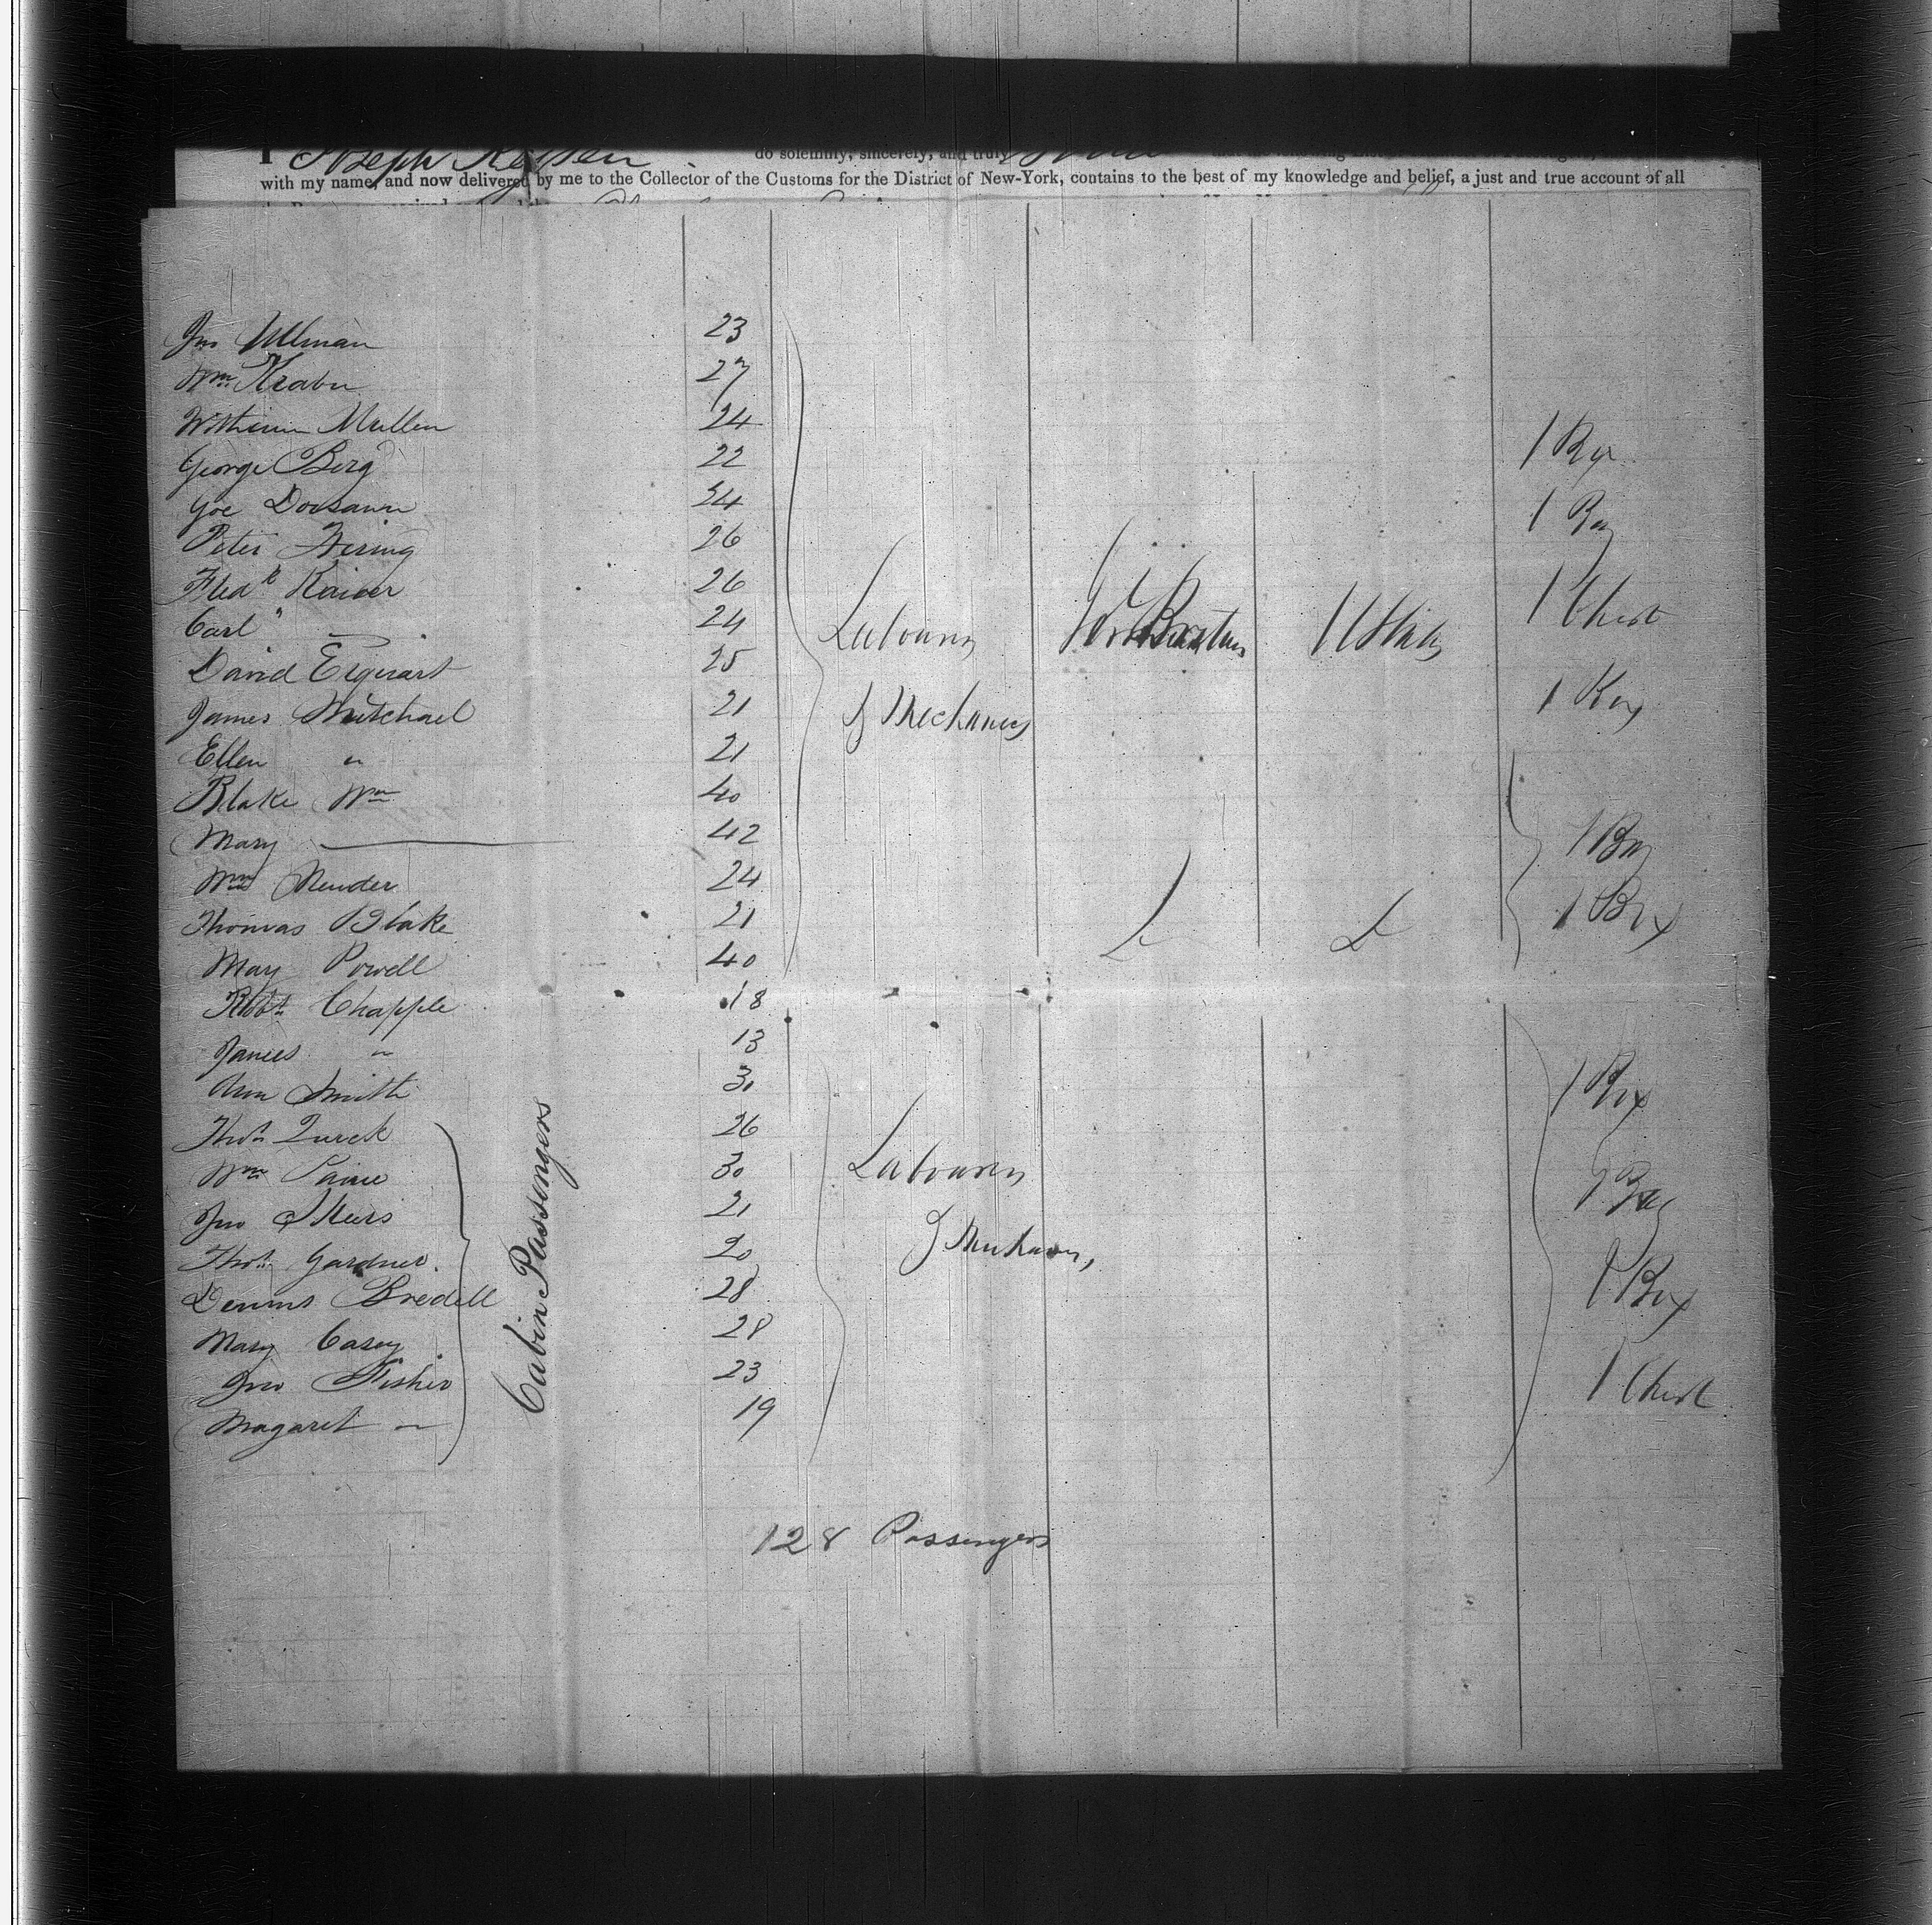 I Joseph do solemnly, sincerely, and truly
with my name, and now delivered by me to the Collector of the Customs for the District of New-York, contains to the best of my knowledge and belief, a just and true account of all
Jno Ullman 23
Wm 27
Mullen 24
George Berg 22 1 Box
Joe 24
Peter 26 1 Bag
Fredk Kaiser 26
Carl " 24 Labourers Gt Britain U States 1 Chest
David 25
James Mitchael 21 & Mechanics 1 Box
Ellen " 21
Blake Wm 40
Mary — 42 1 Bag
Wm 24
Thomas Blake 21 1 Box
May Powell 40
Robt Chapple 18
James " 13
Ann Smith 30 1 Box
Thos Turck 26
Wm Paine 30 Labourers 1 Bag
Jno 21
Thos Gardner. 20 & Mechanics
Dennis Bredell 28 1 Box
Mary Casey 28
Jno Fisher 23 1 Chest
Magaret " 19
Cabin Passengers
128 Passengers